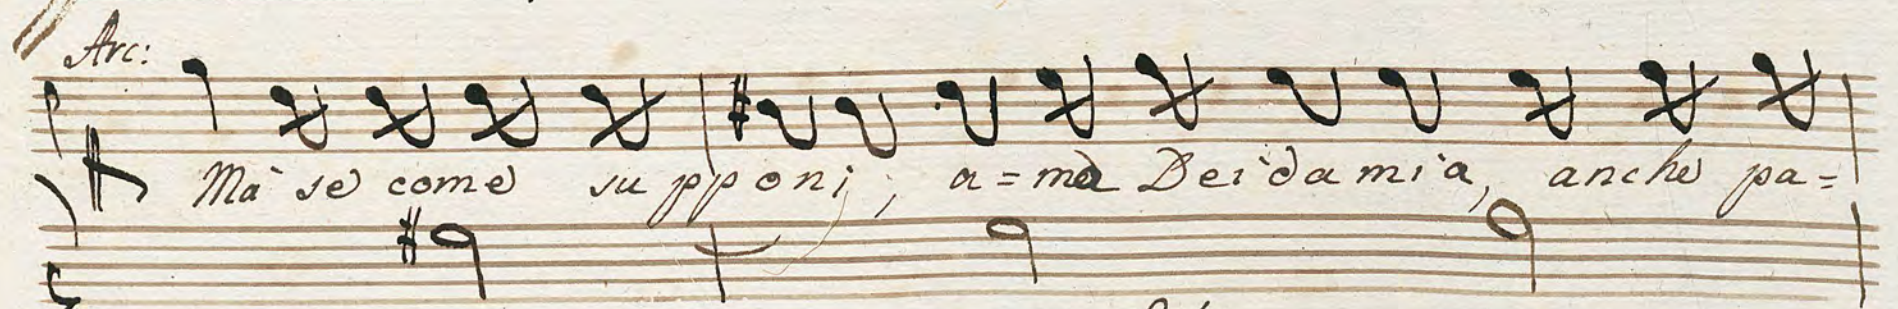 Arc:
Ma se come supponi, a=ma Deidamia, anche pa=